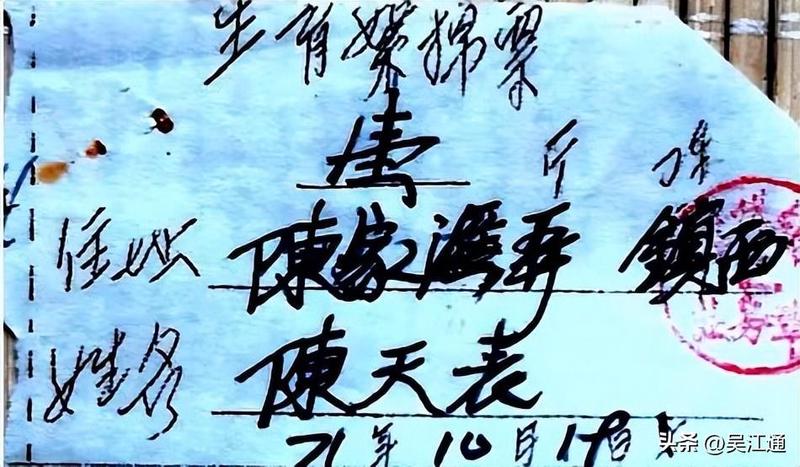 生育奖棉票
壹 斤
住址 陳家灣弄 鎮西
姓名 陳天表
71年10月19日
头条 @吴江通